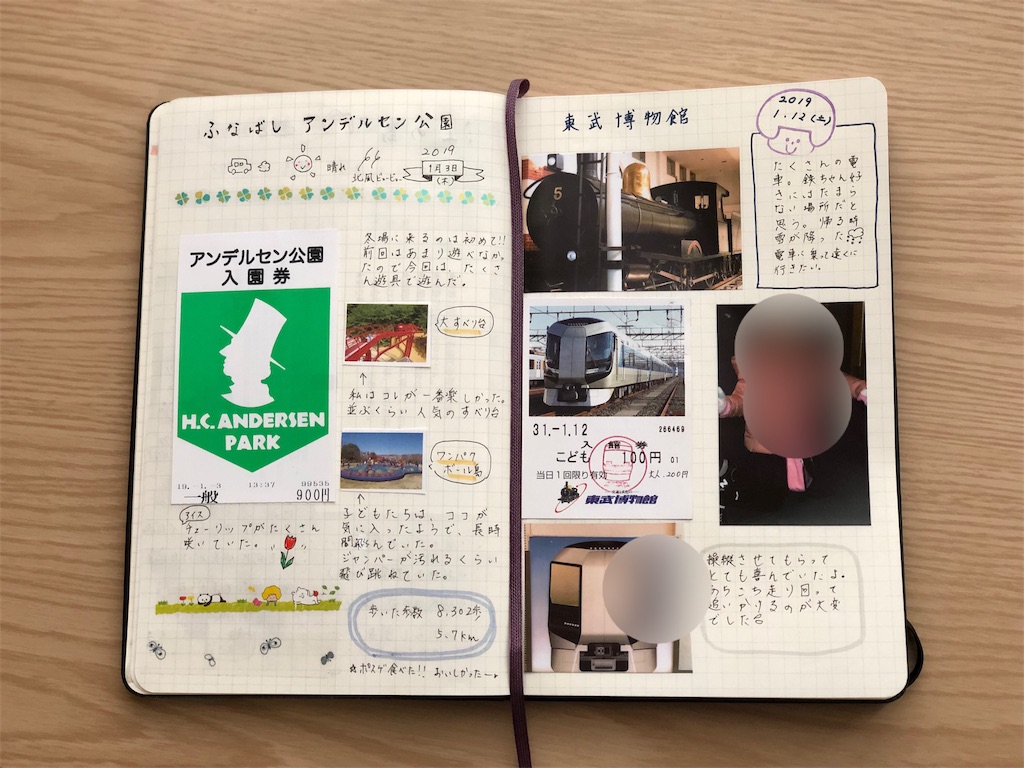 ふなばし アンデルセン公園
晴れ
北風ビュービュー
2019
1月3日
(木)
アンデルセン公園
入園券
H.C.ANDERSEN
PARK
19. 1. -3 13:37 99535
一般 900円
冬場に来るのは初めて!!
前回はあまり遊べなか。
たので今回は、たくさ
ん遊具で遊んだ。
大すべり台
↑
私はコレが一番楽しかった。
並ぶくらい人気のすべり台
ワンパク
ボール島
↑
子どもたちは、ココが
気に入ったようで、長時
間遊んでいた。
ジャンパーが汚れるくらい
飛び跳ねていた。
アイス
チューリップがたくさん
咲いていた。
歩いた歩数 8,302歩
5.7km
☆ポスゲ食べた!! おいしかったー
東武博物館
2019
1.12(土)
たくさんの電
車。鉄ちゃん好
きにはたまら
ない場所だと
思う。帰る時
雪が降った
電車に乗って遠くに
行きたい。
5
31.-1.12 266469
入館券
こども 100円 01
当日1回限り有効 大人200円
東武博物館
操縦させてもらって
とても喜んでいたよ。
あちこち走り回って
追いかけるのが大変
でした